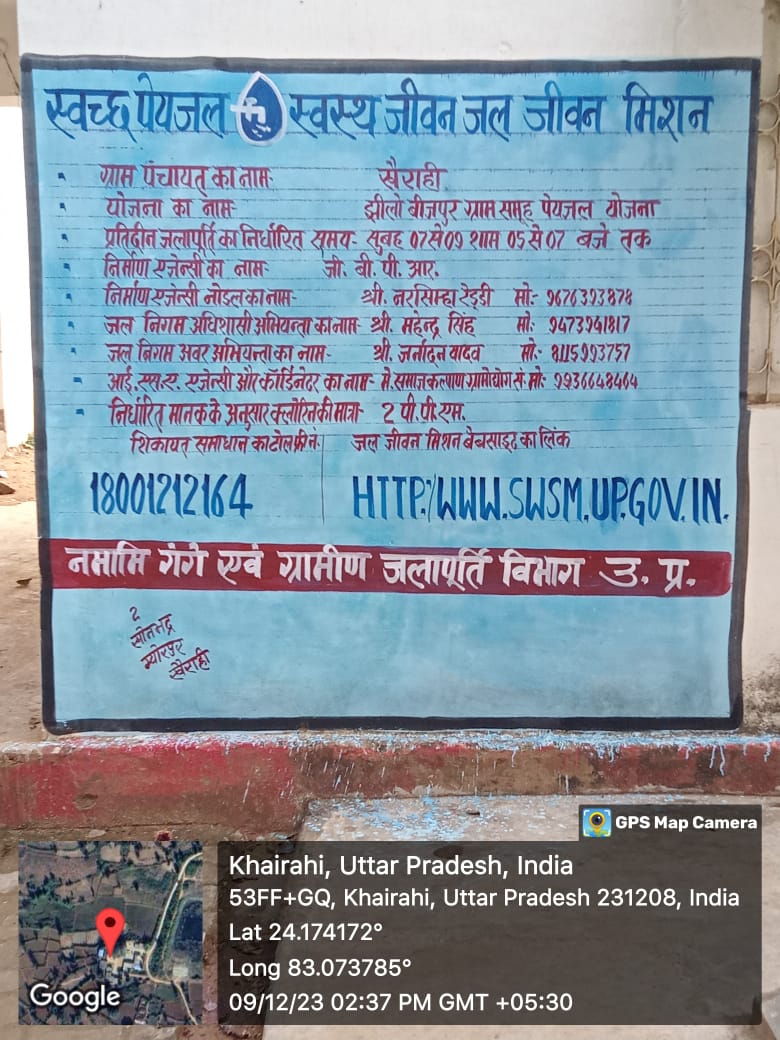 स्वच्छ पेयजल स्वस्थ जीवन जल जीवन मिशन
ग्राम पंचायत का नाम- खैराही
योजना का नाम- झीलो बीजपुर ग्राम समूह पेयजल योजना
प्रतिदीन जलापूर्ति का निर्धारित समय- सुबह 07 से 09 शाम 05 से 07 बजे तक
निर्माण एजेन्सी का नाम- जी. बी. पी. आर.
निर्माण एजेन्सी नोडल का नाम- श्री. नरसिम्हा रेड्डी मो:- 9676393878
जल निगम अधिशासी अभियन्ता का नाम- श्री. महेन्द्र सिंह मो: 9473941817
जल निगम अवर अभियन्ता का नाम- श्री. जर्नादन यादव मो:- 8115993757
आई. एस. ए. एजेन्सी और कॉर्डिनेटर का नाम- मे. समाज कल्याण ग्रामोयोग सं. मो:- 9936648464
निर्धारित मानक के अनुसार क्लोरिन की मात्रा- 2 पी. पी. एम.
शिकायत समाधान का टोल फ्री नं. जल जीवन मिशन बेबसाइट का लिंक
18001212164 HTTP:/WWW.SWSM.UP.GOV.IN.
नमामि गंगे एवं ग्रामीण जलापूर्ति विभाग उ. प्र.
2
सोनभद्र
म्योरपुर
खैराही
GPS Map Camera
Khairahi, Uttar Pradesh, India
53FF+GQ, Khairahi, Uttar Pradesh 231208, India
Lat 24.174172°
Long 83.073785°
09/12/23 02:37 PM GMT +05:30
Google